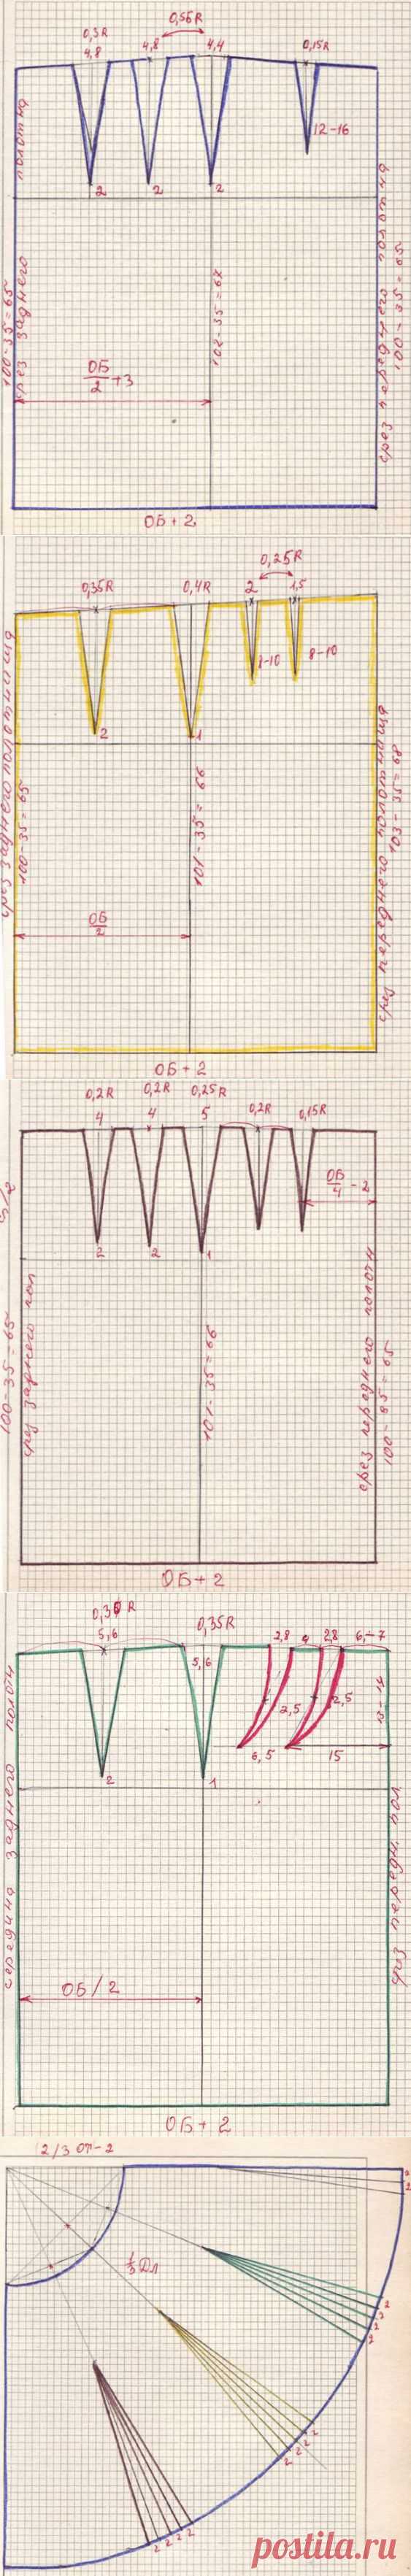 0,56R
0,3R
4,8 4,8 4,4 0,15R
12-16
2 2 2
100-35=65
срез заднего полотна
102-35=67
срез переднего полотна
100-35=65
ОБ/2 +3
ОБ+2
0,25R
0,35R 0,4R 2 1,5
8-10 8-10
2 1
срез заднего полотнища
100-35=65
101-35=66
срез переднего полотнища
103-35=68
ОБ/2
ОБ+2
0,2R 0,2R 0,25R
4 4 5 0,2R 0,15R
ОБ/4 -2
2 2 1
100-35=65
срез заднего пол
101-35=66
срез переднего полотн
100-35=65
ОБ+2
0,35R 0,35R
5,6 5,6 2,8 4 2,8 6,-7
2,5 2,5
6,5 15
2 1
середина заднего полотн
срез передн. пол.
ОБ/2
ОБ+2
2/3 ОТ-2
1/3 Дл
2
2
2
2
2
2
2 2 2 2
2 2 2 2
postila.ru